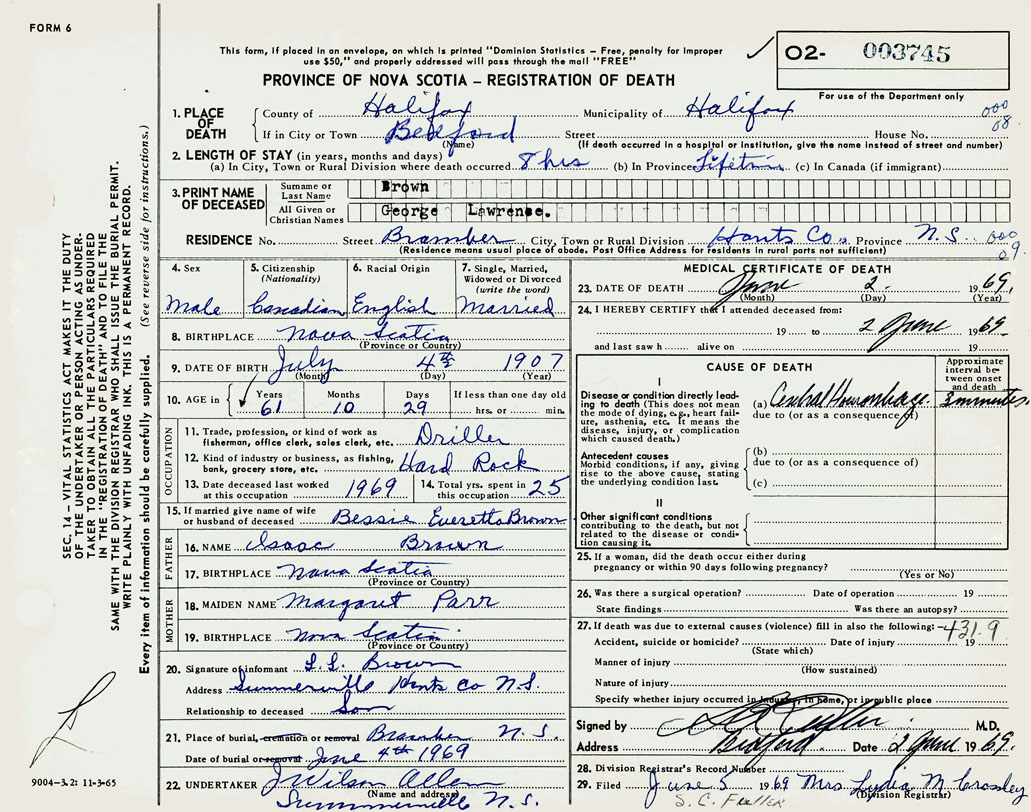 FORM 6
This form, if placed in an envelope, on which is printed "Dominion Statistics – Free, penalty for improper
use $50," and properly addressed will pass through the mail "FREE"
PROVINCE OF NOVA SCOTIA – REGISTRATION OF DEATH
O2- 003745
For use of the Department only
000
08
1. PLACE OF DEATH
County of Halifax Municipality of Halifax
If in City or Town Bedford Street House No.
(Name) (If death occurred in a hospital or institution, give the name instead of street and number)
2. LENGTH OF STAY (in years, months and days)
(a) In City, Town or Rural Division where death occurred 8 hrs (b) In Province Lifetime (c) In Canada (if immigrant)
3. PRINT NAME OF DECEASED
Surname or Last Name Brown
All Given or Christian Names George Lawrence.
RESIDENCE No. Street Bramber City, Town or Rural Division Hants Co. Province N.S.
(Residence means usual place of abode. Post Office Address for residents in rural parts not sufficient)
000
09
SEC. 14 – VITAL STATISTICS ACT MAKES IT THE DUTY
OF THE UNDERTAKER OR PERSON ACTING AS UNDER-
TAKER TO OBTAIN ALL THE PARTICULARS REQUIRED
IN THE "REGISTRATION OF DEATH" AND TO FILE THE
SAME WITH THE DIVISION REGISTRAR WHO SHALL ISSUE THE BURIAL PERMIT.
WRITE PLAINLY WITH UNFADING INK. THIS IS A PERMANENT RECORD.
Every item of information should be carefully supplied. (See reverse side for instructions.)
4. Sex
Male
5. Citizenship
(Nationality)
Canadian
6. Racial Origin
English
7. Single, Married,
Widowed or Divorced
(write the word)
Married
8. BIRTHPLACE Nova Scotia
(Province or Country)
9. DATE OF BIRTH July 4th 1907
(Month) (Day) (Year)
10. AGE in Years Months Days If less than one day old
61 10 29 hrs. or min.
OCCUPATION
11. Trade, profession, or kind of work as
fisherman, office clerk, sales clerk, etc. Driller
12. Kind of industry or business, as fishing,
bank, grocery store, etc. Hard Rock
13. Date deceased last worked
at this occupation 1969
14. Total yrs. spent in
this occupation 25
15. If married give name of wife
or husband of deceased Bessie Everetta Brown
FATHER
16. NAME Isaac Brown
17. BIRTHPLACE Nova Scotia
(Province or Country)
MOTHER
18. MAIDEN NAME Margaret Parr
19. BIRTHPLACE Nova Scotia
(Province or Country)
20. Signature of informant L.L. Brown
Address Summerville Hants Co N.S.
Relationship to deceased Son
21. Place of burial, cremation or removal Bramber N.S.
Date of burial or removal June 4th 1969
22. UNDERTAKER J Wilson Allen
(Name and address)
Summerville N.S.
9004–3.2: 11-3-65
MEDICAL CERTIFICATE OF DEATH
23. DATE OF DEATH June 2. 1969.
(Month) (Day) (Year)
24. I HEREBY CERTIFY that I attended deceased from:
19 to 2 June 1969
and last saw h alive on 19
CAUSE OF DEATH
Approximate
interval be-
tween onset
and death
I
Disease or condition directly lead-
ing to death (This does not mean
the mode of dying, e.g., heart fail-
ure, asthenia, etc. It means the
disease, injury, or complication
which caused death.)
(a) Cerebral Hemorrhage. 3 minutes.
due to (or as a consequence of)
Antecedent causes
Morbid conditions, if any, giving
rise to the above cause, stating
the underlying condition last.
(b)
due to (or as a consequence of)
(c)
II
Other significant conditions
contributing to the death, but not
related to the disease or condi-
tion causing it.
25. If a woman, did the death occur either during
pregnancy or within 90 days following pregnancy?
(Yes or No)
26. Was there a surgical operation? Date of operation 19
State findings Was there an autopsy?
27. If death was due to external causes (violence) fill in also the following: 431.9
Accident, suicide or homicide? Date of injury 19
(State which)
Manner of injury
(How sustained)
Nature of injury
Specify whether injury occurred in industry, in home, or in public place
Signed by M.D.
Address Bedford. Date 2 June 1969.
28. Division Registrar's Record Number
29. Filed June 5 1969 Mrs Lydia M. Crosley
(Division Registrar)